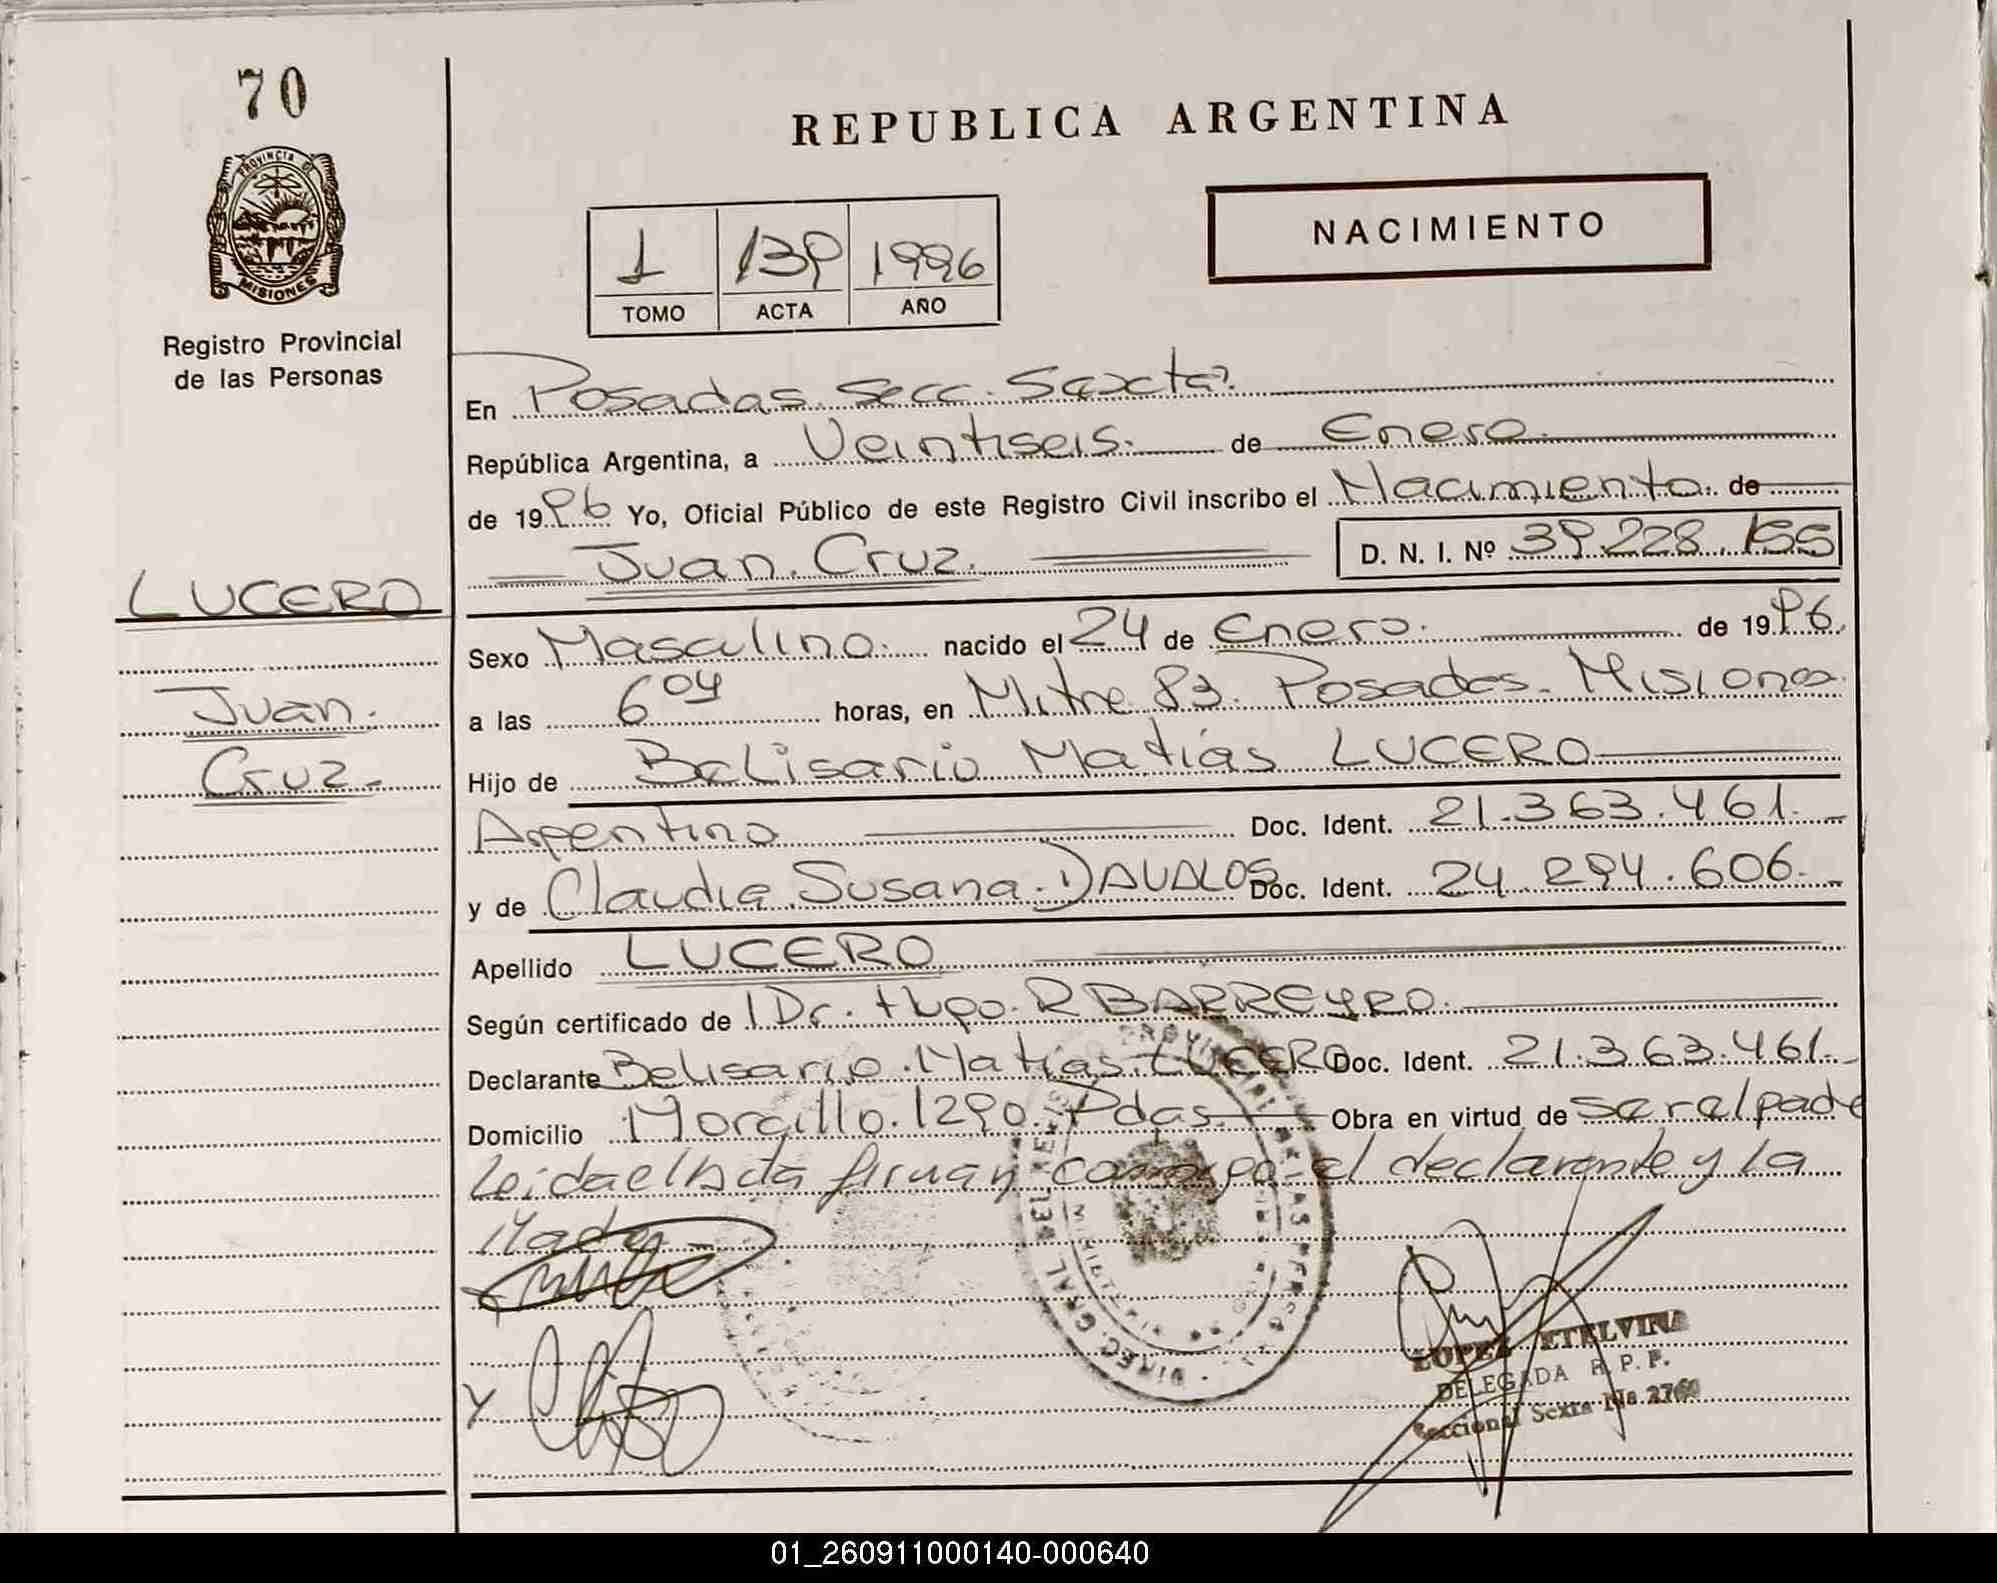 70
PROVINCIA DE
MISIONES
Registro Provincial
de las Personas
LUCERO
Juan.
Cruz.
REPUBLICA ARGENTINA
NACIMIENTO
1 139 1996
TOMO ACTA AÑO
En Posadas. Secc. Sexta.
República Argentina, a Veintiseis. de Enero.
de 1996 Yo, Oficial Público de este Registro Civil inscribo el Nacimiento. de
Juan. Cruz. D. N. I. Nº 39.228.155
Sexo Masculino. nacido el 24 de Enero. de 1996.
a las 6 04 horas, en Mitre 83. Posadas. Misiones
Hijo de Belisario Matías LUCERO
Argentino Doc. Ident. 21.363.461.
y de Claudia Susana. DAVALOS Doc. Ident. 24 294.606.
Apellido LUCERO
Según certificado de Dr. Hugo. R BARREYRO.
Declarante Belisario. Matías. LUCERO Doc. Ident. 21.363.461.
Domicilio 1290. Pdas. Obra en virtud de ser el padre
Leida el Acta firman conmigo el declarante y la
Madre
Y
DIREC. GRAL DEL REG. PROVINCIAL DE LAS PERSONAS
LOPEZ ETELVINA
DELEGADA R. P. P.
Seccional Sexta No. 2760
01_260911000140-000640